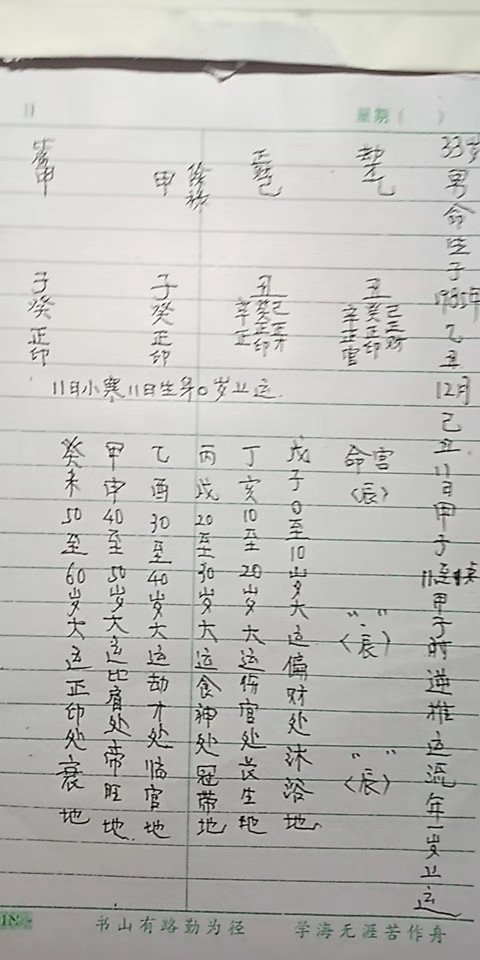 星期（ ）
33岁男命生于1985年乙丑12月己丑11日甲子11点甲子时逆推运流年一岁上运
劫才乙
丑
己正财
癸正印
辛正官
命宫〈辰〉
〃〃〈辰〉
〃〃〈辰〉
正财己
丑
己正才
癸正印
辛正
日元甲
子
癸
正印
甲
子
癸
正印
11日小寒11日生年0岁上运.
戊子0至10岁大运偏财处沐浴地
丁亥10至20岁大运伤官处长生地
丙戌20至30岁大运食神处冠带地
乙酉30至40岁大运劫才处临官地
甲申40至50岁大运比肩处帝旺地.
癸未50至60岁大运正印处衰地
书山有路勤为径 学海无涯苦作舟